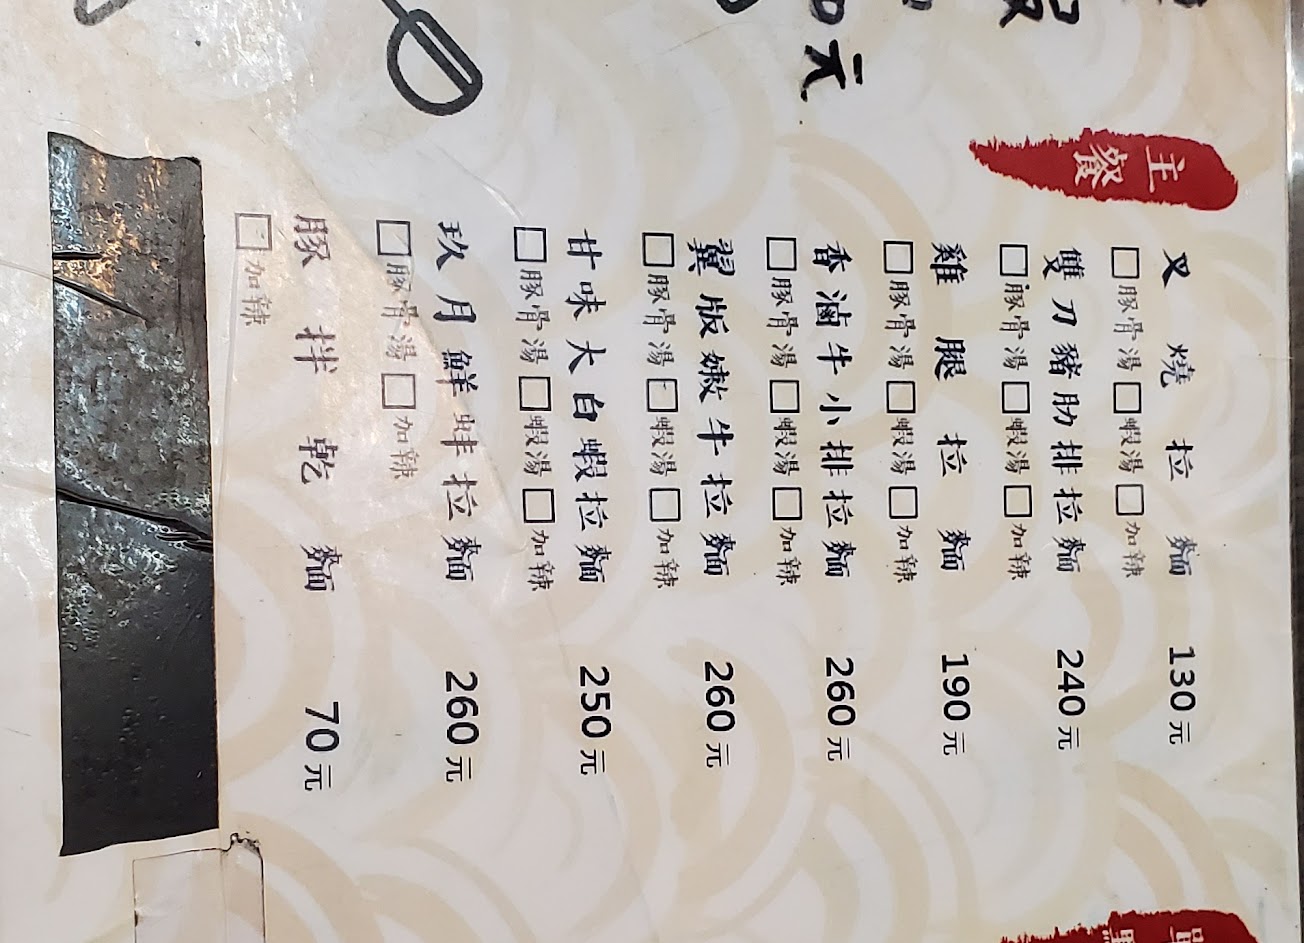 元
主餐
叉燒拉麵 130元
□豚骨湯 □蝦湯 □加辣
雙刀豬肋排拉麵 240元
□豚骨湯 □蝦湯 □加辣
雞腿拉麵 190元
□豚骨湯 □蝦湯 □加辣
香滷牛小排拉麵 260元
□豚骨湯 □蝦湯 □加辣
翼版嫩牛拉麵 260元
□豚骨湯 □蝦湯 □加辣
甘味大白蝦拉麵 250元
□豚骨湯 □蝦湯 □加辣
玖月鮮蚌拉麵 260元
□豚骨湯 □加辣
豚拌乾麵 70元
□加辣